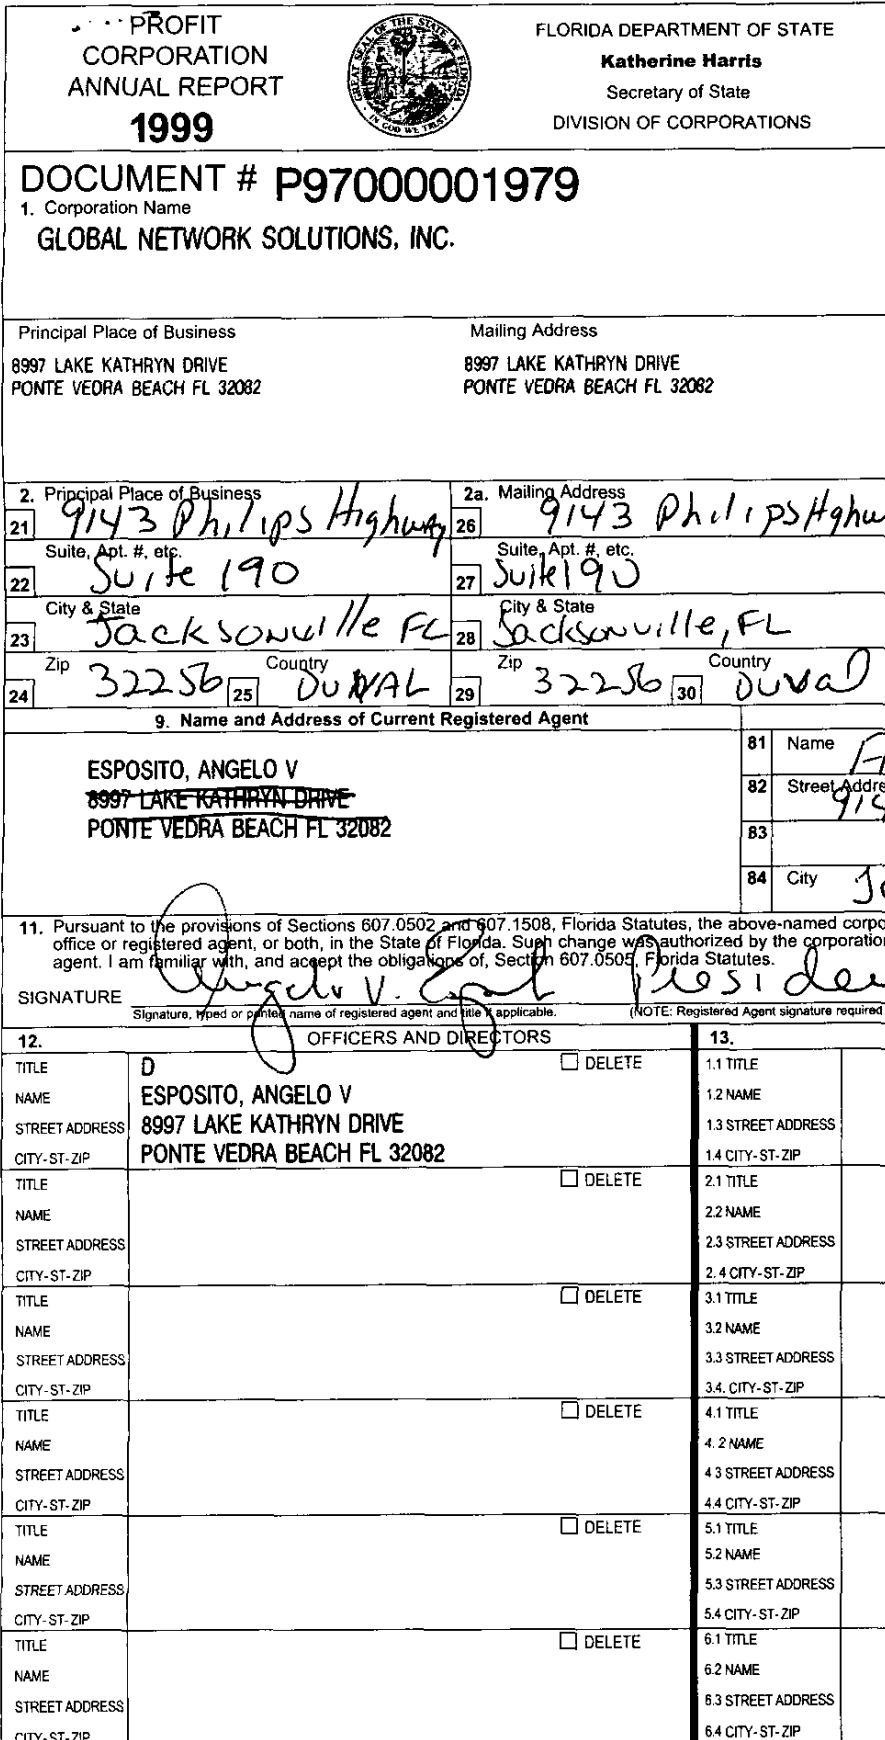 PROFIT
CORPORATION
ANNUAL REPORT
1999
GREAT SEAL OF THE STATE OF FLORIDA
IN GOD WE TRUST
FLORIDA DEPARTMENT OF STATE
Katherine Harris
Secretary of State
DIVISION OF CORPORATIONS
DOCUMENT # P97000001979
1. Corporation Name
GLOBAL NETWORK SOLUTIONS, INC.
Principal Place of Business
8997 LAKE KATHRYN DRIVE
PONTE VEDRA BEACH FL 32082
Mailing Address
8997 LAKE KATHRYN DRIVE
PONTE VEDRA BEACH FL 32082
2. Principal Place of Business
21 9143 Philips Highway
Suite, Apt. #, etc.
22 Suite 190
City & State
23 Jacksonville FL
Zip Country
24 32256 25 DUVAL
2a. Mailing Address
26 9143 Philips Hghw
Suite, Apt. #, etc.
27 Suite 190
City & State
28 Jacksonville, FL
Zip Country
29 32256 30 Duval
9. Name and Address of Current Registered Agent
ESPOSITO, ANGELO V
8997 LAKE KATHRYN DRIVE
PONTE VEDRA BEACH FL 32082
81 Name
82 Street Addre
914
83
84 City Ja
11. Pursuant to the provisions of Sections 607.0502 and 607.1508, Florida Statutes, the above-named corpo
office or registered agent, or both, in the State of Florida. Such change was authorized by the corporation
agent. I am familiar with, and accept the obligations of, Section 607.0505, Florida Statutes.
SIGNATURE Angelo V. Esposito Presiden
Signature, typed or printed name of registered agent and title if applicable. (NOTE: Registered Agent signature required
12. OFFICERS AND DIRECTORS 13.
TITLE D DELETE
NAME ESPOSITO, ANGELO V
STREET ADDRESS 8997 LAKE KATHRYN DRIVE
CITY-ST-ZIP PONTE VEDRA BEACH FL 32082
1.1 TITLE
1.2 NAME
1.3 STREET ADDRESS
1.4 CITY-ST-ZIP
TITLE DELETE
NAME
STREET ADDRESS
CITY-ST-ZIP
2.1 TITLE
2.2 NAME
2.3 STREET ADDRESS
2.4 CITY-ST-ZIP
TITLE DELETE
NAME
STREET ADDRESS
CITY-ST-ZIP
3.1 TITLE
3.2 NAME
3.3 STREET ADDRESS
3.4. CITY-ST-ZIP
TITLE DELETE
NAME
STREET ADDRESS
CITY-ST-ZIP
4.1 TITLE
4.2 NAME
4 3 STREET ADDRESS
4.4 CITY-ST-ZIP
TITLE DELETE
NAME
STREET ADDRESS
CITY-ST-ZIP
5.1 TITLE
5.2 NAME
5.3 STREET ADDRESS
5.4 CITY-ST-ZIP
TITLE DELETE
NAME
STREET ADDRESS
CITY-ST-ZIP
6.1 TITLE
6.2 NAME
6.3 STREET ADDRESS
6.4 CITY-ST-ZIP